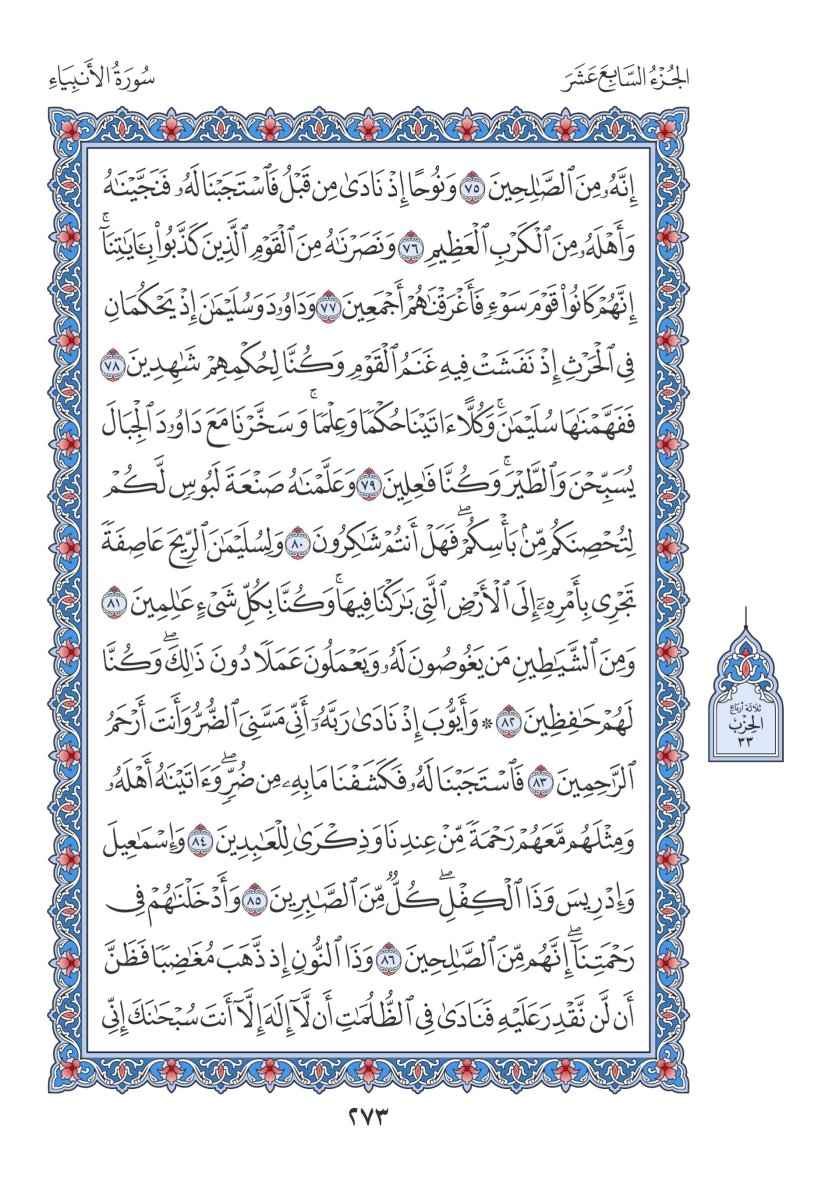 الجُزْءُ السَّابِعَ عَشَرَ
سُورَةُ الأَنبِيَاءِ
إِنَّهُۥ مِنَ ٱلصَّٰلِحِينَ ٧٥ وَنُوحًا إِذْ نَادَىٰ مِن قَبْلُ فَٱسْتَجَبْنَا لَهُۥ فَنَجَّيْنَٰهُ
وَأَهْلَهُۥ مِنَ ٱلْكَرْبِ ٱلْعَظِيمِ ٧٦ وَنَصَرْنَٰهُ مِنَ ٱلْقَوْمِ ٱلَّذِينَ كَذَّبُوا۟ بِـَٔايَٰتِنَآۚ
إِنَّهُمْ كَانُوا۟ قَوْمَ سَوْءٍ فَأَغْرَقْنَٰهُمْ أَجْمَعِينَ ٧٧ وَدَاوُۥدَ وَسُلَيْمَٰنَ إِذْ يَحْكُمَانِ
فِى ٱلْحَرْثِ إِذْ نَفَشَتْ فِيهِ غَنَمُ ٱلْقَوْمِ وَكُنَّا لِحُكْمِهِمْ شَٰهِدِينَ ٧٨
فَفَهَّمْنَٰهَا سُلَيْمَٰنَۚ وَكُلًّا ءَاتَيْنَا حُكْمًا وَعِلْمًاۚ وَسَخَّرْنَا مَعَ دَاوُۥدَ ٱلْجِبَالَ
يُسَبِّحْنَ وَٱلطَّيْرَۚ وَكُنَّا فَٰعِلِينَ ٧٩ وَعَلَّمْنَٰهُ صَنْعَةَ لَبُوسٍ لَّكُمْ
لِتُحْصِنَكُم مِّنۢ بَأْسِكُمْۖ فَهَلْ أَنتُمْ شَٰكِرُونَ ٨٠ وَلِسُلَيْمَٰنَ ٱلرِّيحَ عَاصِفَةً
تَجْرِى بِأَمْرِهِۦٓ إِلَى ٱلْأَرْضِ ٱلَّتِى بَٰرَكْنَا فِيهَاۚ وَكُنَّا بِكُلِّ شَىْءٍ عَٰلِمِينَ ٨١
وَمِنَ ٱلشَّيَٰطِينِ مَن يَغُوصُونَ لَهُۥ وَيَعْمَلُونَ عَمَلًا دُونَ ذَٰلِكَۖ وَكُنَّا
لَهُمْ حَٰفِظِينَ ٨٢ * وَأَيُّوبَ إِذْ نَادَىٰ رَبَّهُۥٓ أَنِّى مَسَّنِىَ ٱلضُّرُّ وَأَنتَ أَرْحَمُ
ٱلرَّٰحِمِينَ ٨٣ فَٱسْتَجَبْنَا لَهُۥ فَكَشَفْنَا مَا بِهِۦ مِن ضُرٍّۖ وَءَاتَيْنَٰهُ أَهْلَهُۥ
وَمِثْلَهُم مَّعَهُمْ رَحْمَةً مِّنْ عِندِنَا وَذِكْرَىٰ لِلْعَٰبِدِينَ ٨٤ وَإِسْمَٰعِيلَ
وَإِدْرِيسَ وَذَا ٱلْكِفْلِۖ كُلٌّ مِّنَ ٱلصَّٰبِرِينَ ٨٥ وَأَدْخَلْنَٰهُمْ فِى
رَحْمَتِنَآۖ إِنَّهُم مِّنَ ٱلصَّٰلِحِينَ ٨٦ وَذَا ٱلنُّونِ إِذ ذَّهَبَ مُغَٰضِبًا فَظَنَّ
أَن لَّن نَّقْدِرَ عَلَيْهِ فَنَادَىٰ فِى ٱلظُّلُمَٰتِ أَن لَّآ إِلَٰهَ إِلَّآ أَنتَ سُبْحَٰنَكَ إِنِّى
ثلاثة أرباع
الحزب
٣٣
٢٧٣